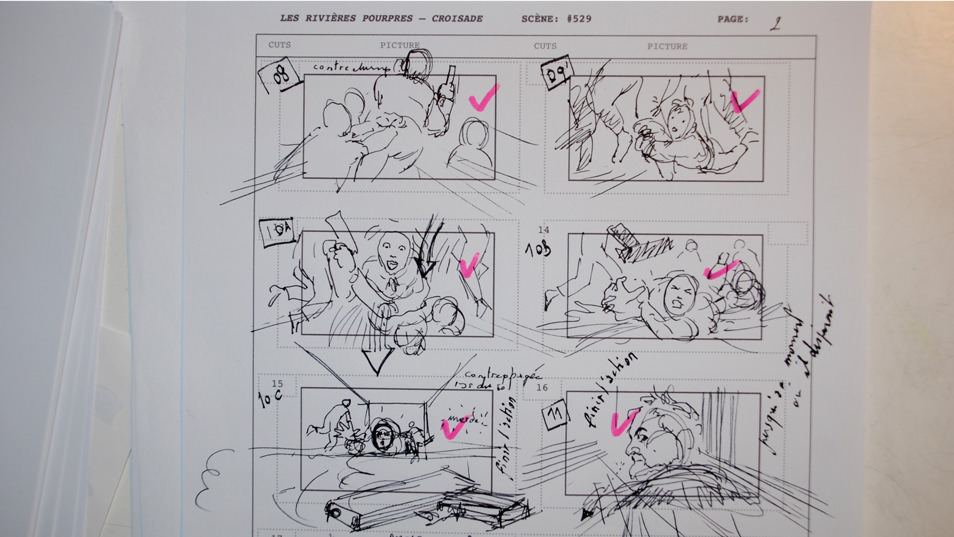 LES RIVIÈRES POURPRES — CROISADE SCÈNE: #529 PAGE: 2
CUTS PICTURE CUTS PICTURE
08
09
10A
14
10B
15
10C
finir l'action
16
11
finir l'action
jusqu'au moment
où il disparaît